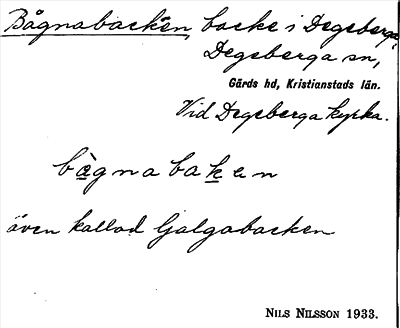 Bågnabacken, backe i Degeberga,
Degeberga sn,
Gärds hd, Kristianstads län.
Vid Degeberga kyrka.
bàgnabaken
även kallad Galgabacken
NILS NILSSON 1933.